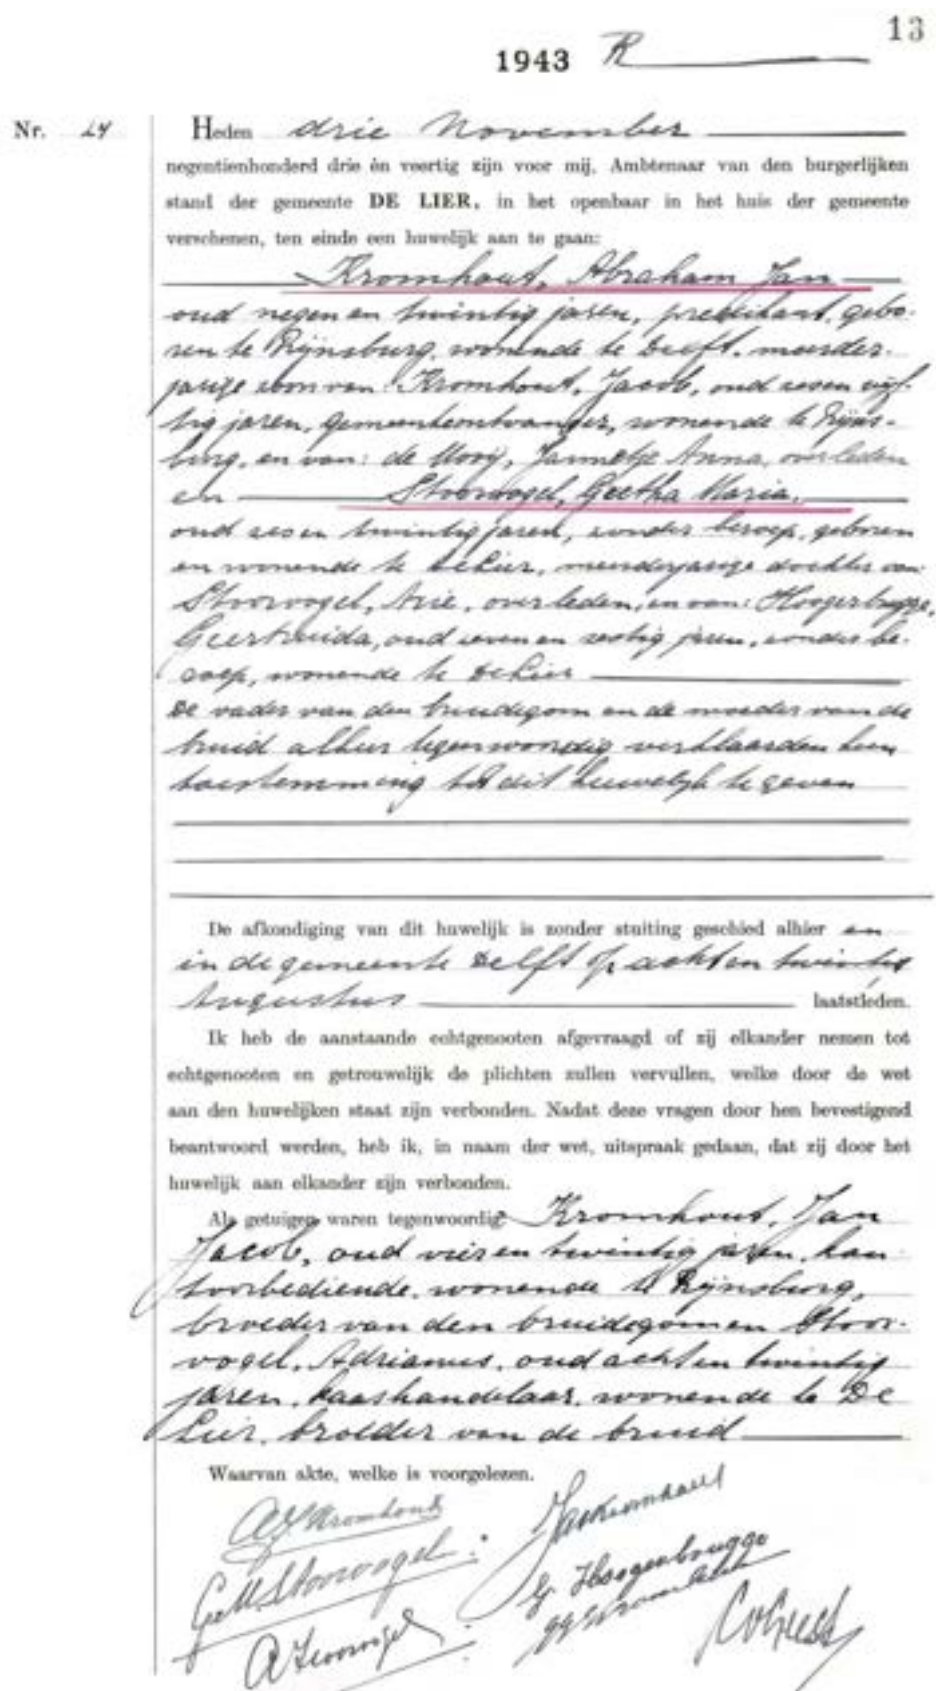 13
1943 R
Nr. 24
Heden drie November
negentienhonderd drie én veertig zijn voor mij, Ambtenaar van den burgerlijken
stand der gemeente DE LIER, in het openbaar in het huis der gemeente
verschenen, ten einde een huwelijk aan te gaan:
Kromhout, Abraham Jan
oud negen en twintig jaren, predikant, gebo-
ren te Rijnsburg, wonende te Delft, meerder-
jarige zoon van: Kromhout, Jacob, oud zes en vijf-
tig jaren, gemeenteontvanger, wonende te Rijns-
burg, en van: de Mooij, Jannetje Anna, overleden
en Stoorvogel, Geetha Maria,
oud zes en twintig jaren, zonder beroep, geboren
en wonende te De Lier, meerderjarige dochter van:
Stoorvogel, Arie, overleden, en van: Hoogerbrugge,
Geertruida, oud zeven en zestig jaren, zonder be-
roep, wonende te De Lier
De vader van den bruidegom en de moeder van de
bruid alhier tegenwoordig verklaarden hun
toestemming tot dit huwelijk te geven
De afkondiging van dit huwelijk is zonder stuiting geschied alhier en
in de gemeente Delft op acht en twintig
Augustus laatstleden.
Ik heb de aanstaande echtgenooten afgevraagd of zij elkander nemen tot
echtgenooten en getrouwelijk de plichten zullen vervullen, welke door de wet
aan den huwelijken staat zijn verbonden. Nadat deze vragen door hen bevestigend
beantwoord werden, heb ik, in naam der wet, uitspraak gedaan, dat zij door het
huwelijk aan elkander zijn verbonden.
Als getuigen waren tegenwoordig: Kromhout, Jan
Jacob, oud vier en twintig jaren, kan-
toorbediende, wonende te Rijnsburg,
broeder van den bruidegom en Stoor-
vogel, Adrianus, oud acht en twintig
jaren, kaashandelaar, wonende te De
Lier, broeder van de bruid
Waarvan akte, welke is voorgelezen.
AJ Kromhout
Jac Kromhout
G.M. Stoorvogel
G. Hoogerbrugge
JJ Kromhout
A Stoorvogel